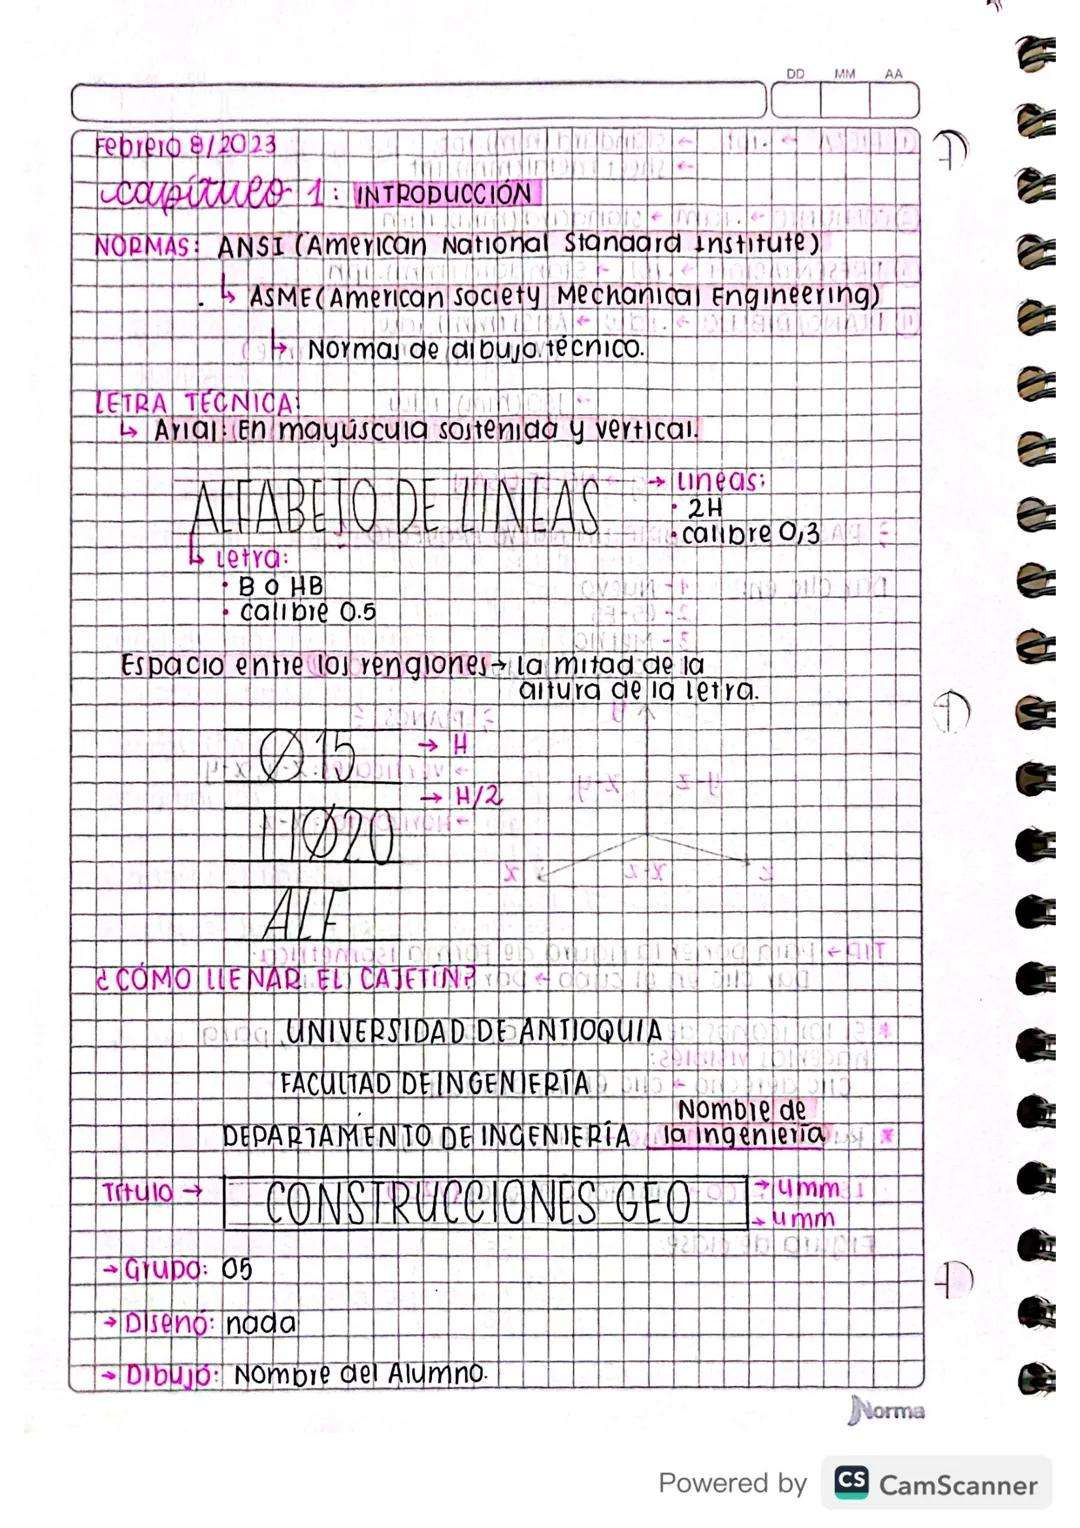 DD MM AA
Febrero 8/2023
capítulo 1: INTRODUCCIÓN
NORMAS: ANSI (American National Standard Institute)
↳ ASME (American Society Mechanical Engineering)
↳ Normas de dibujo técnico.
LETRA TÉCNICA:
↳ Arial: En mayúscula sostenida y vertical.
ALFABETO DE LINEAS
→ Lineas:
• 2H
• calibre 0,3
↳ Letra:
• B O HB
• calibre 0.5
Espacio entre los renglones → la mitad de la
altura de la letra.
Ø 15 → H
→ H/2
11Ø20
ALF
¿CÓMO LLENAR EL CAJETÍN?
UNIVERSIDAD DE ANTIOQUIA
FACULTAD DE INGENIERÍA
Nombre de
DEPARTAMENTO DE INGENIERÍA la ingeniería
Título → CONSTRUCCIONES GEO → 4mm
→ 4mm
→ Grupo: 05
→ Diseñó: nada
→ Dibujó: Nombre del Alumno.
Norma
Powered by CS CamScanner